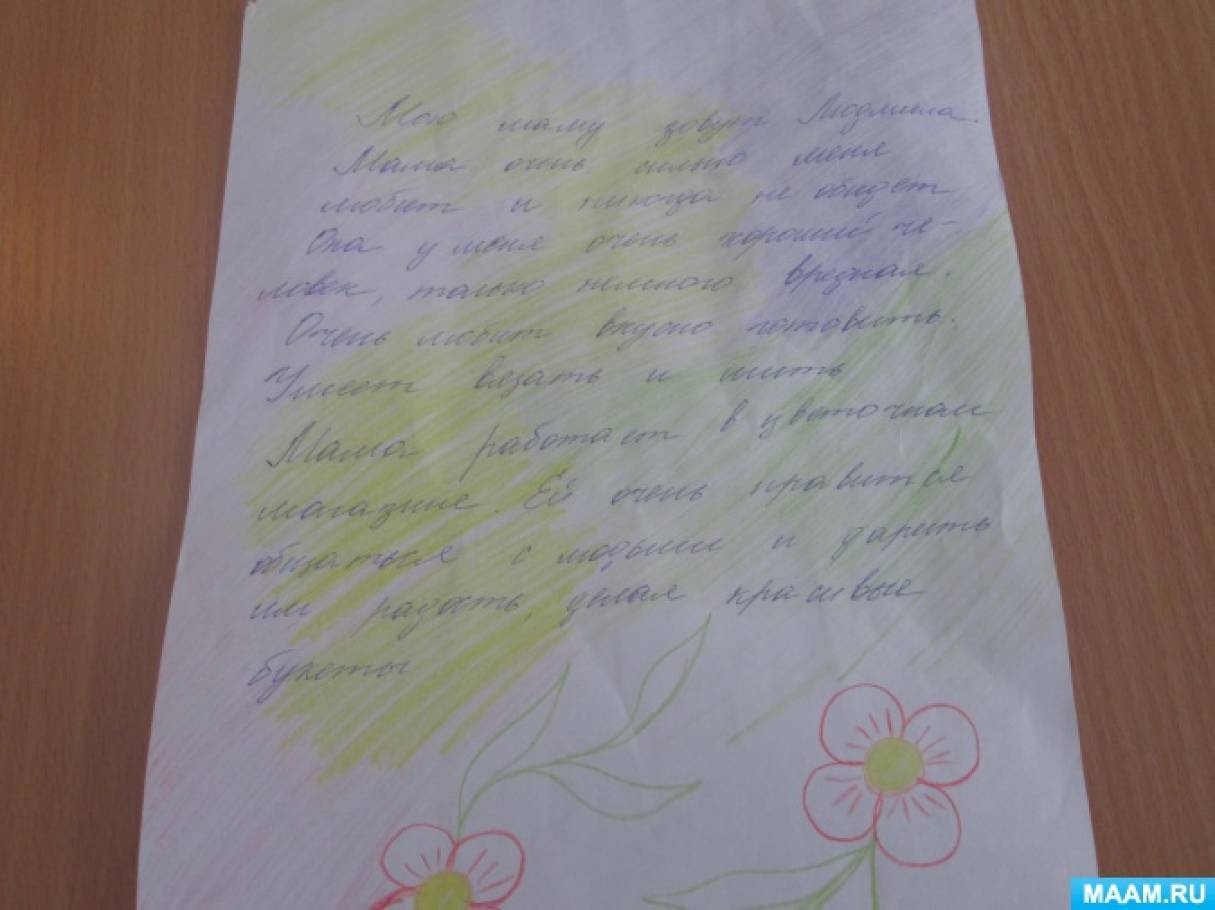 Мою маму зовут Людмила.
Мама очень сильно меня
любит и никогда не обидет
Она у меня очень хороший че-
ловек, только немного вредная.
Очень любит вкусно готовить.
Умеет вязать и шить
Мама работает в цветочном
магазине. Ей очень нравится
общаться с людьми и дарить
им радость, делая красивые
букеты
MAAM.RU